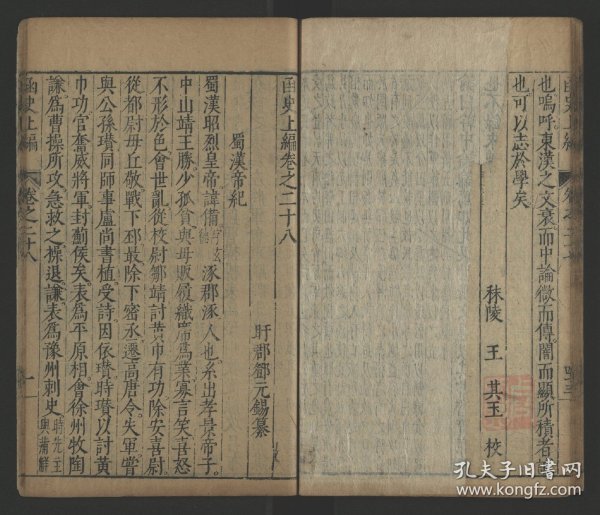 也嗚呼東漢之文衰而中論徵而傳闇而顯所積者
也可以志於學矣
秣陵 王 其玉 校
函史上編卷之二十八
盱郡鄧元錫纂
蜀漢帝紀
蜀漢昭烈皇帝諱備字玄德涿郡涿人也系出孝景帝子
中山靖王勝少孤貧與母販履織席為業寡言笑喜怒
不形於色會世亂從校尉鄒靖討黃巾有功除安喜尉
從都尉毋丘敬戰下邳最除下密丞遷高唐令失軍嘗
與公孫瓚同師事盧尚書植受詩因依瓚時瓚以討黃
巾功官奮威將軍封薊侯矣表為平原相會徐州牧陶
謙為曹操所攻急救之操退謙表為豫州刺史時先主
函史上編 卷之二十八 一
孔夫子旧书网
www.kongfz.com